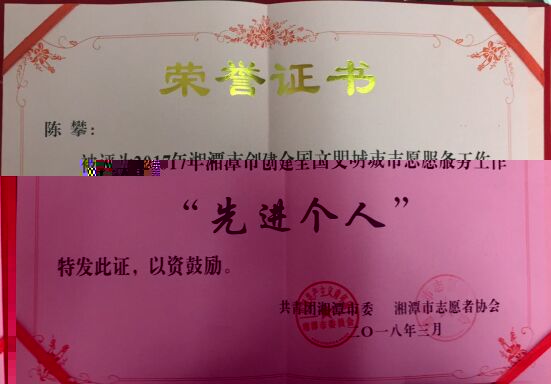 荣誉证书
陈攀：
被评为2017年湘潭市创建全国文明城市志愿服务工作
“先进个人”
特发此证，以资鼓励。
共青团湘潭市委 湘潭市志愿者协会
二〇一八年三月